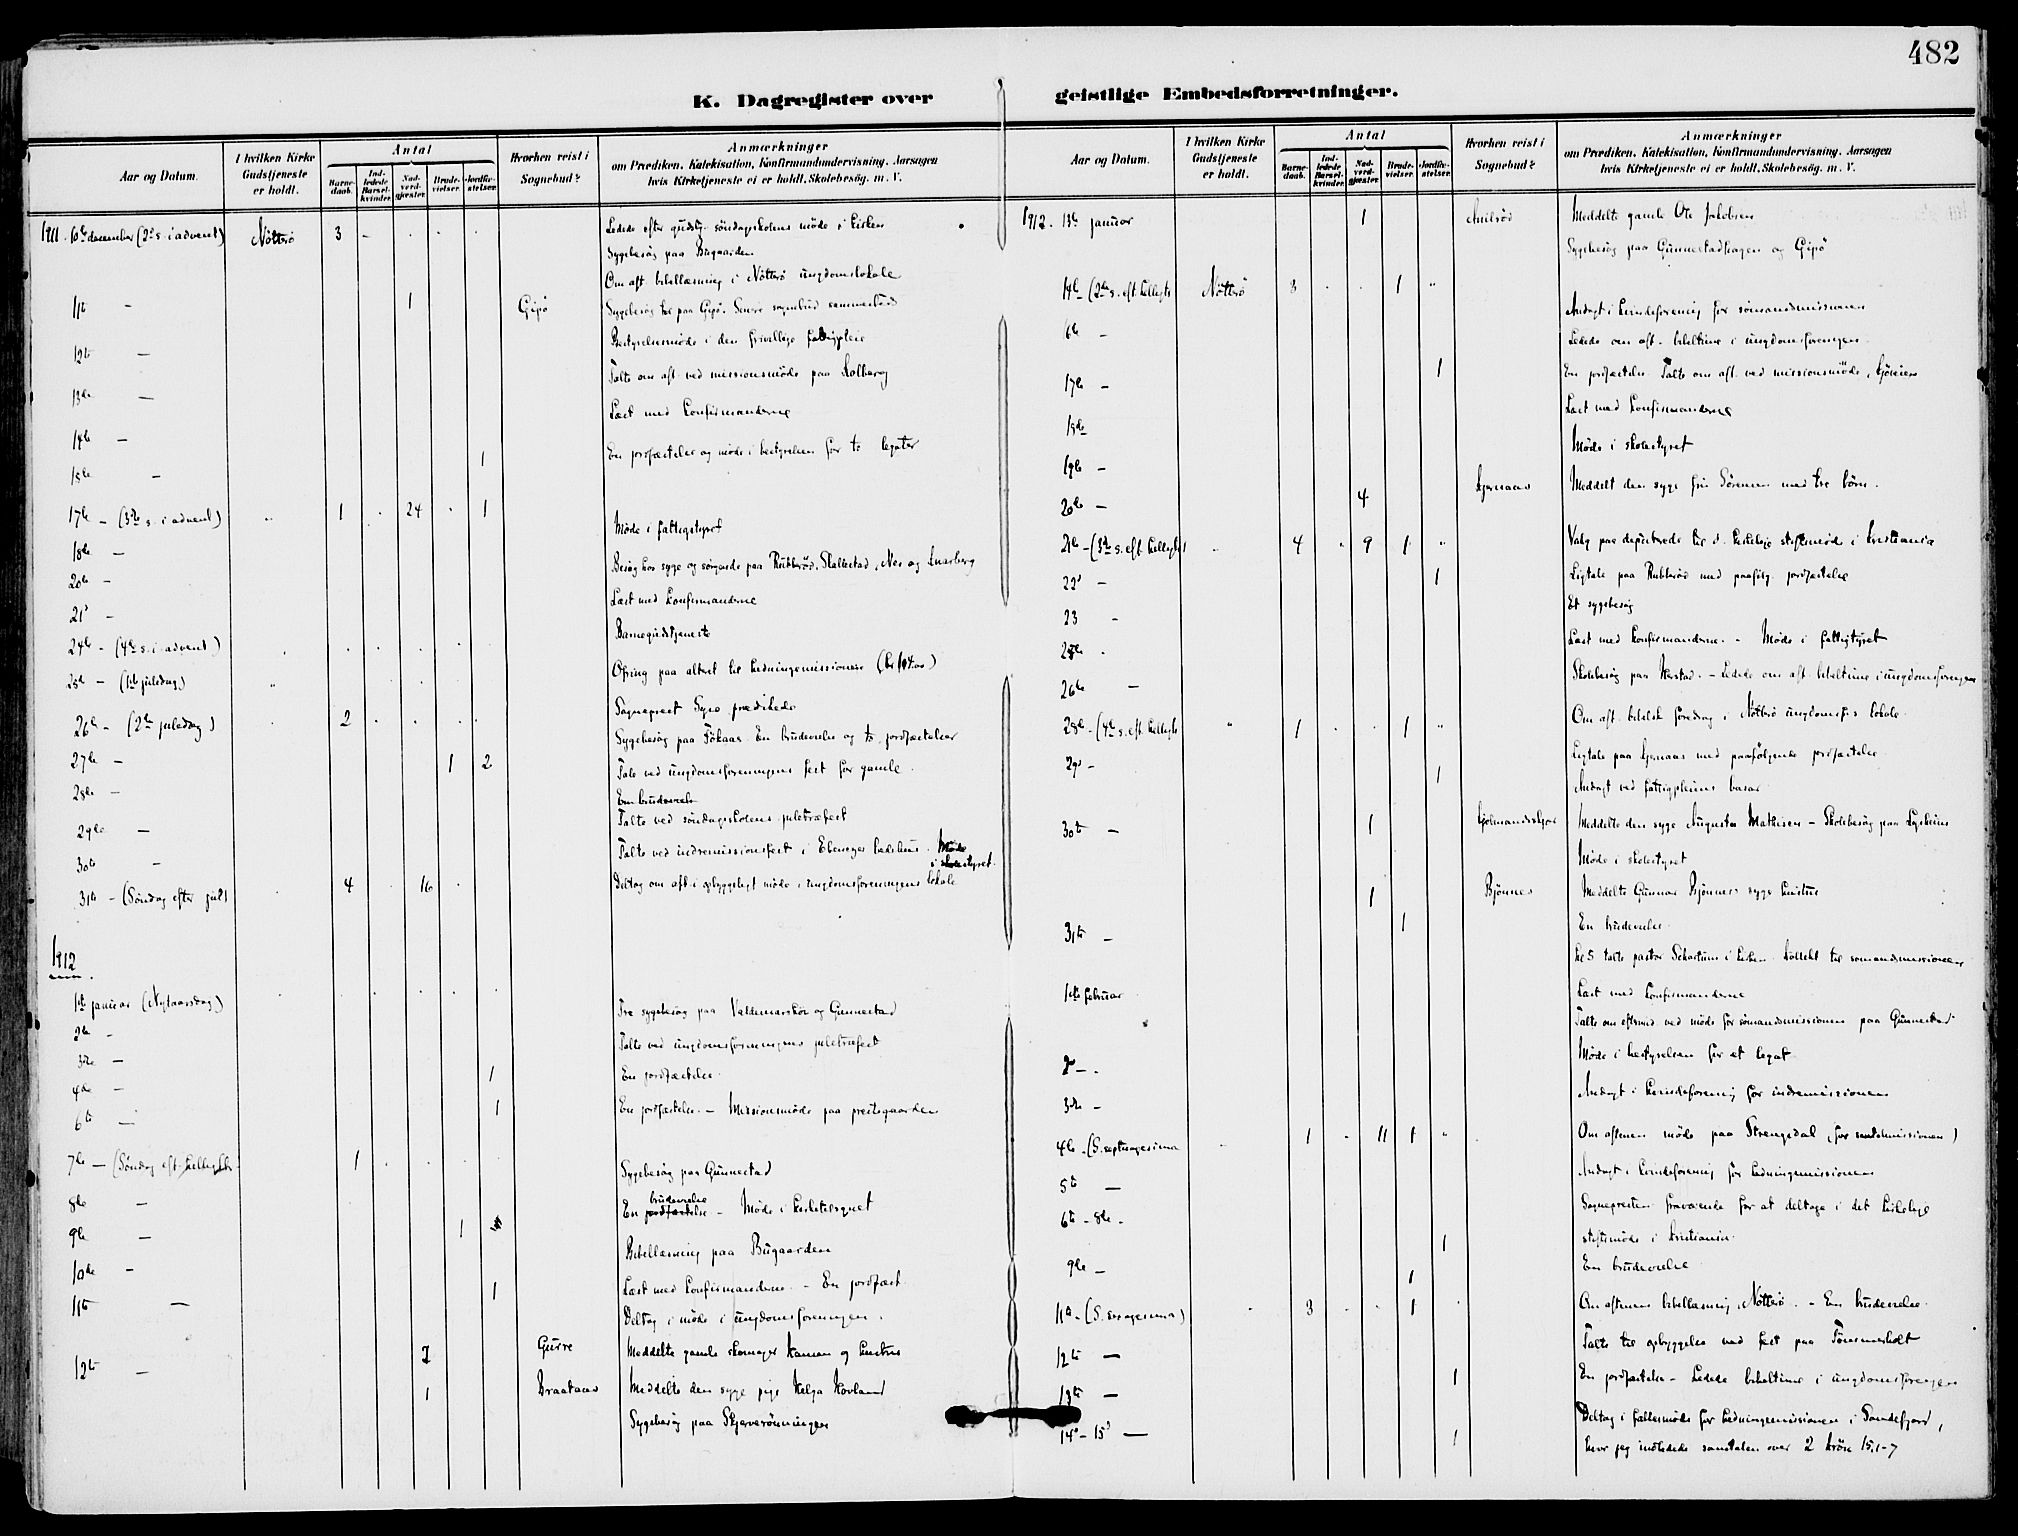 482
K. Dagregister over geistlige Embedsforretninger.
Aar og Datum. I hvilken Kirke Gudstjeneste er holdt. Antal Barnedaab. Indledede Barselkvinder. Nadverdgjester. Brudevielser. Jordfæstelser. Hvorhen reist i Sognebud? Anmærkninger om Prædiken, Katekisation, Konfirmandundervisning, Aarsagen hvis Kirketjeneste ei er holdt, Skolebesøg. m. V.
1911. 10de december (2s. i advent) Nötterö 3 - Ledede efter gudstj. söndagsskolens möde i kirken
Sygebesög paa Bugaarden
Om aft. bibellæsning i Nötterö ungdomslokale
11te - 1 Gipö Sygebesög paa Gipö. Senere sognebud sammesteds
12te - Bestyrelsesmöde i den frivillige fattigpleie
13de - Talte om aft. ved missionsmöde paa Kolberg
14de - Læst med konfirmanderne
15de - 1 En jordfæstelse og möde i bestyrelsen for to legater
17de - (3die s. i advent) " 1 . 24 . 1
18de - Möde i fattigstyret
20de - Besög hos syge og sörgende paa Rubberöd, Skallestad, Nes og
21de - Læst med konfirmanderne
24de - (4de s. i advent) Barnegudstjeneste
25de - (1ste juledag) " Ofring paa altret til hedningemissionen
26de - (2den juledag) 2 Sogneprest prædikede
27de - 1 2 Sygebesög paa Fökaas. En brudevielse og to jordfæstelser
28de - Tale ved ungdomsforeningens fest for gamle.
En brudevielse
29de - Talte ved söndagsskolens juletræfest
30te - Talte ved indremissionsfest i Ebenezer bedehus. Möde i skolestyret.
31te - (Söndag efter jul) 4 . 16 . Deltog om aft. i opbyggeligt möde i ungdomsforeningens lokale
1912
1ste januar (Nytaarsdag)
2de - Tre sygebesög paa Valdemarskör og Gunnestad
3die - Talte ved ungdomsforeningens juletræfest
4de - 1 En jordfæstelse.
6te - 1 En jordfæstelse. - Missionsmöde paa prestegaarden
7de - (Söndag eft. helligtr. 1
8de - Sygebesög paa Gunnestad
9de - 1 En brudevielse - Möde i kirketilsynet
10de - Bibellæsning paa Bugaarden
11te - 1 Læst med konfirmanderne. - En jordfæst.
Deltog i möde i ungdomsforeningen.
12te - 2 Gurre Meddelte gamle skomager Hansen og hustru
1 Braataas Meddelte den syge pige Helga Hovland
Sygebesög paa Skjerverönningen
Aar og Datum. I hvilken Kirke Gudstjeneste er holdt. Antal Barnedaab. Indledede Barselkvinder. Nadverdgjester. Brudevielser. Jordfæstelser. Hvorhen reist i Sognebud? Anmærkninger om Prædiken, Katekisation, Konfirmandundervisning, Aarsagen hvis Kirketjeneste ei er holdt, Skolebesøg. m. V.
1912. 13de januar 1 Meddelte gamle Ole Jakobsen
Sygebesög paa Gunnestadhagen og Gipö
14de (2den s. eft. helligtr Nötterö 3 . . 1 "
6te - Andagt i kvindeforening for sömandsmissionen
Ledede om aft. bibeltime i ungdomsforeningen.
17de - 1 En jordfæstelse. Talte om aft. ved missionsmöde,
18de Læst med konfirmanderne
19de - Möde i skolestyret
20de - 4 Meddelt den syge fru Sörensen med tre börn.
21de - (3die s. eft. helligtr " 4 . 9 1 " Valg paa deputerede til d. kirkelige stiftsmöde i Kristiania
22de - 1 Ligtale paa Rubberöd med paafölg. jordfæstelse
23 - Et sygebesög
25de - Læst med konfirmanderne. - Möde i fattigstyret
26de - Skolebesög paa Herstad. - Ledede om aft. bibeltime i ungdomsforeningen
28de - (4de s. eft. helligtr " 1 . . 1 " Om aft. bibelsk foredrag i Nötterö ungdomsf.s lokale.
29de - 1 Ligtale paa med paafölgende jordfæstelse.
Andagt ved fattigpleiens basar
30te - 1 Meddelte den syge Augusta Mathisen - Skolebesög paa
Möde i skolestyret
1 Bjönnes Meddelte Gunnar Bjönnes syge hustru
31te - 1 En brudevielse.
Kl 5 talte pastor i kirken. Kollekt til sömandsmissionen
1ste februar Læst med konfirmanderne
Talte om efterm. ved möde for sömandsmissionen paa Gunnestad
2den - . Möde i bestyrelsen for et legat
3die - Andagt i kvindeforening for indremissionen
4de - (S. septuagesima 1 . 11 1 " Om aftenen möde paa Strengsdal
5te - Andagt i kvindeforening for hedningemissionen
6te - 8de - Sognepresten fraværende for at deltage i det kirkelige
1 stiftsmöde i Kristiania.
9de - 1 En brudevielse
11te - (S. sexagesima) 3 . . 1 Om aftenen bibellæsning, Nötterö. - En brudevielse.
12te - Talte til opbyggelse ved fest paa Tömmerholt
13de - 1 En jordfæstelse - Ledede bibeltime i ungdomsforeningen
14de - 15de - 1 Deltog i fællesmöde for hedningemissionen i Sandefjord,
hvor jeg indledede samtalen over 2 krön 15,1-7